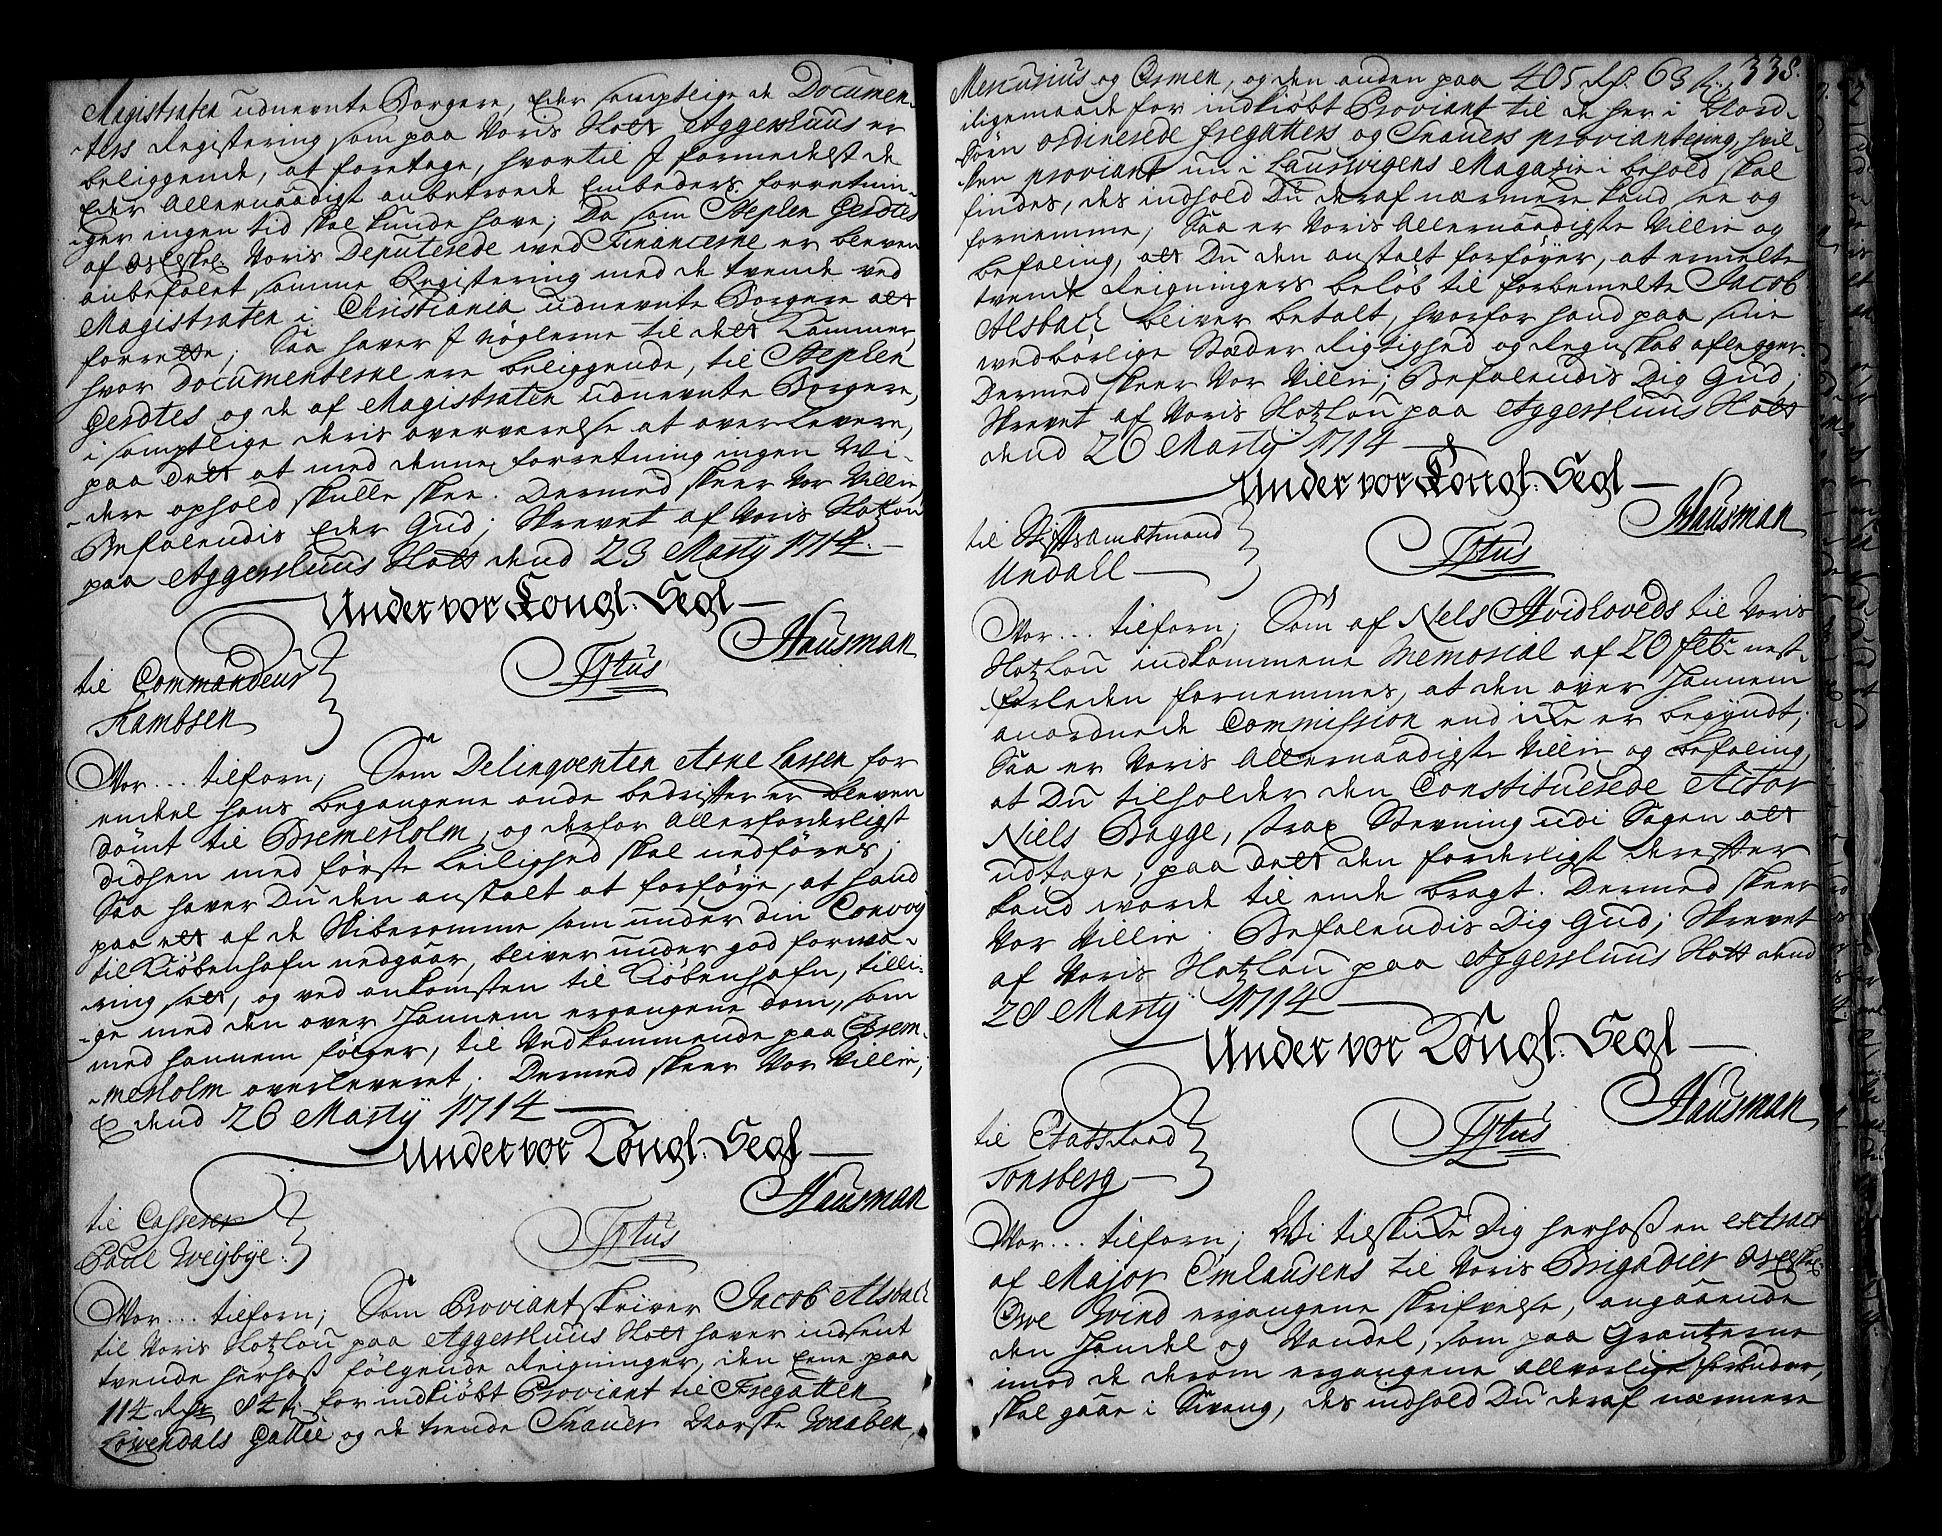 Magistraten udnevnte Borgere, Eder samptlige de Documen-
ters Registering som paa Voris Slott Aggershuus er
beliggende, at foretage, hvortil I formedelst de
Eder Allernaadigst anbetroede Embeders forretnin-
ger ingen tid skal kunde have; Da som Stephen Gerdtes
af Os Elskel. Voris Deputerede ved Financerne er bleven
anbefalet samme Registering med de tvende ved
Magistraten i Christiania udnevnte Borgere at
forrette; Saa haver I nøglerne til dett Kammer,
hvor Documenterne ere beliggende, til Stephen
Gerdtes og de af Magistraten udnevnte Borgere,
i samptlige deris overværelse at overlevere,
paa dett at med denne forretning ingen Vi-
dere ophold skulle skee. Dermed skeer Vor Villie,
Befalendis Eder Gud; Skrevet af Voris Slotzlou
paa Aggershuus Slott dend 23 Marty 1714.
Under vor Kongl: Segl
Hausman
Tytus
til Commandeur
Kambsen
Vor ... tilforn; Som Delinqventen Arne Larsen for
endeel hans begangene onde bedrifter er bleven
dømt til Bremerholm, og derfor Allerforderligst
didhen med første Leilighed skal nedføres;
Saa haver Du den anstalt at forføye, at hand
paa ett af de Skiberomme som under din Convoy
til Kiøbenhafn nedgaar, bliver under god forva-
ring satt, og ved ankomsten til Kiøbenhafn, tilli-
ge med den over hannem ergangene dom, som
med hannem følger, til Vedkommende paa Brem-
merholm overleveret. Dermed skeer Vor Villie,
dend 26 Marty 1714
Under vor Kongl: Segl
Hausman
Tytus
til Casserer
Poul Weybye.
Vor ... tilforn; Som Proviantskriver Jacob Alsbach
til Voris Slotzlou paa Aggershuus Slott haver indsent
tvende herhoß følgende Reigninger, den Eene paa
114 Rdr 84 s. for indkiøbt Proviant til Fregatten
Løvendals Gallei og de tvende Snauer Norske Vaaben,
338.
Mercurius og Ormen, og den anden paa 405 Rd. 63 s.,
iligemaade for indkiøbt Proviant til de her i Nord-
Søen ordinerede fregatters og Snauers proviantering, hvil-
ken proviant nu i Laurvigens Magazin i behold skal
findes, des indhold Du deraf nærmere kand see og
fornemme; Saa er Voris Allernaadigste Villie og
befaling, at Du den anstalt forføyer, at ermelte
tvende Reigningers beløb til forbemelte Jacob
Alsbach bliver betalt, hvorfor hand paa sine
vedbørlige Stæder Rigtighed og Regnskab aflegger.
Dermed skeer Vor Villie; Befalendis Dig Gud;
Skrevet af Voris Slotzlou paa Aggershuus Slott
dend 26 Marty 1714
Under vor Kongl: Segl
Hausman
Tytus
til Stiftsambtmand
Undall
Vor ... tilforn; Som af Niels Hvidhoveds til Voris
Slotzlou indkommene Memorial af 20 Febr. nest-
forleden fornemmes, at den over hannem
anordnede Commission end icke er begyndt;
Saa er Voris Allernaadigste Villie og befaling,
at Du tilholder den Constituerede Actor
Niels Bagge, strax Stevning udi Sagen at
udtage, paa dett den forderligst derefter
kand worde til ende bragt. Dermed skeer
Vor Villie. Befalendis Dig Gud; Skrevet
af Voris Slotzlou paa Aggershuus Slott dend
28 Marty 1714
Under vor Kongl: Segl
Hausman
Tytus
til Etatsraad
Tonsberg
Vor ... tilforn; Wi tilskicke Dig herhoß en extract
af Major Emhausens til Voris Brigadier Os Elskel.
Ove Wind ergangene skrifvelse, angaaende
den Handel og Vandel, som paa Grantzerne
imod de derom ergangene allvorlige forbuder,
skal gaae i Svang, des indhold Du deraf nærmere